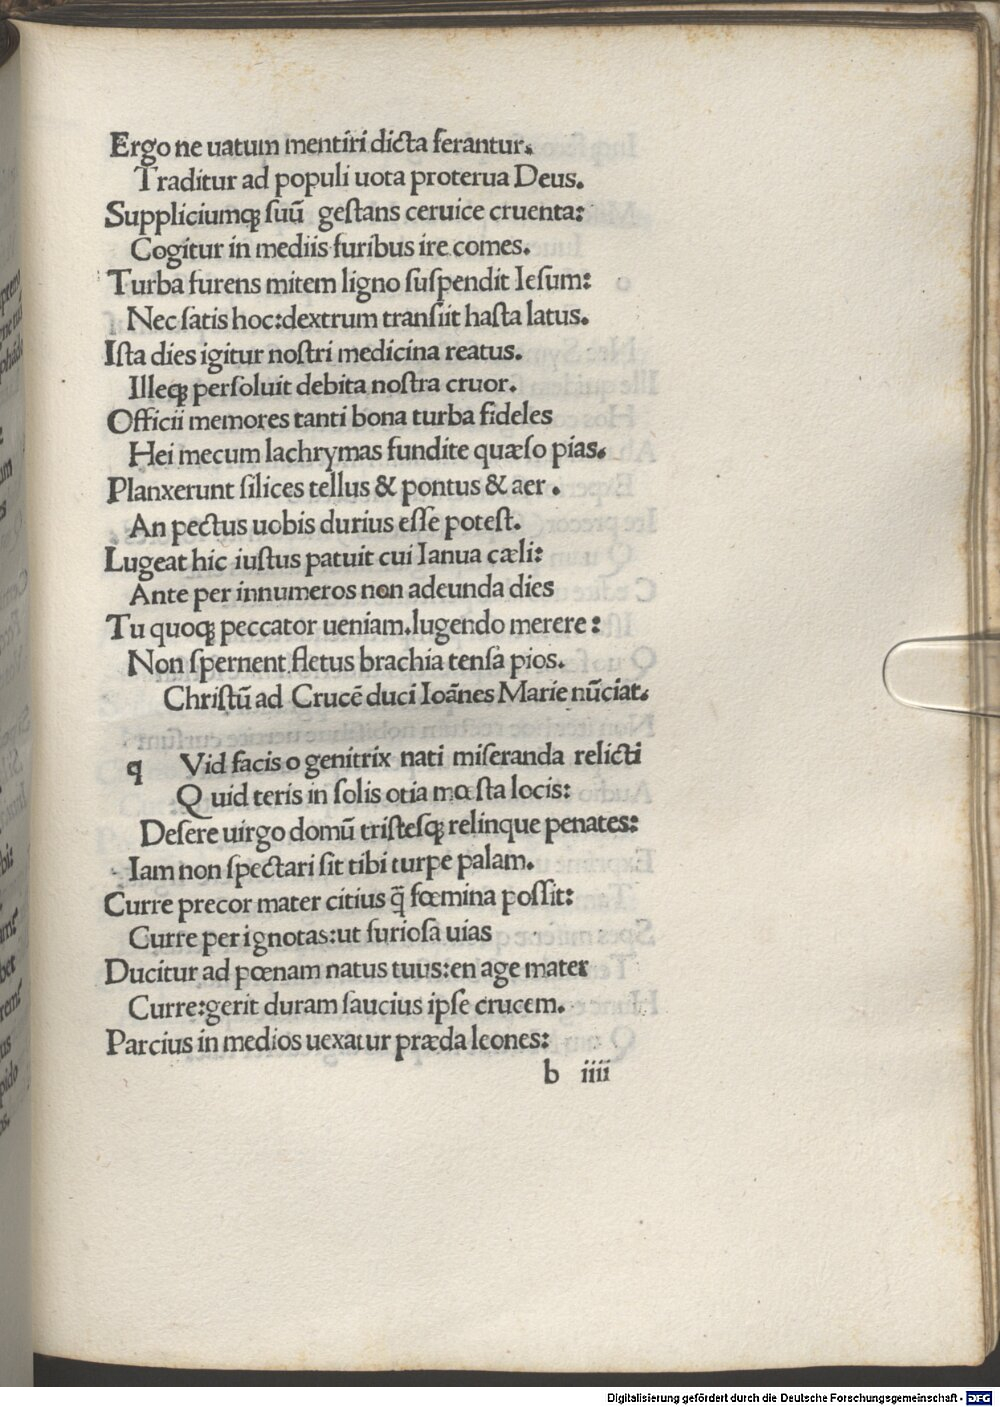 Ergo ne uatum mentiri dicta ferantur.
Traditur ad populi uota proterua Deus.
Suppliciumqꝫ suū gestans ceruice cruenta:
Cogitur in mediis furibus ire comes.
Turba furens mitem ligno suspendit Iesum:
Nec satis hoc:dextrum transiit hasta latus.
Ista dies igitur nostri medicina reatus.
Illeqꝫ persoluit debita nostra cruor.
Officii memores tanti bona turba fideles
Hei mecum lachrymas fundite quæso pias.
Planxerunt silices tellus & pontus & aer .
An pectus uobis durius esse potest.
Lugeat hic iustus patuit cui Ianua cæli:
Ante per innumeros non adeunda dies
Tu quoqꝫ peccator ueniam.lugendo merere :
Non spernent fletus brachia tensa pios.
Christū ad Crucē duci Ioānes Marie nūciat.
q Vid facis o genitrix nati miseranda relicti
Q uid teris in solis otia mœsta locis:
Desere uirgo domū tristesqꝫ relinque penates:
Iam non spectari sit tibi turpe palam.
Curre precor mater citius q̄ fœmina possit:
Curre per ignotas:ut furiosa uias
Ducitur ad pœnam natus tuus:en age mater
Curre:gerit duram saucius ipse crucem.
Parcius in medios uexatur præda leones:
b iiii
Digitalisierung gefördert durch die Deutsche Forschungsgemeinschaft - DFG